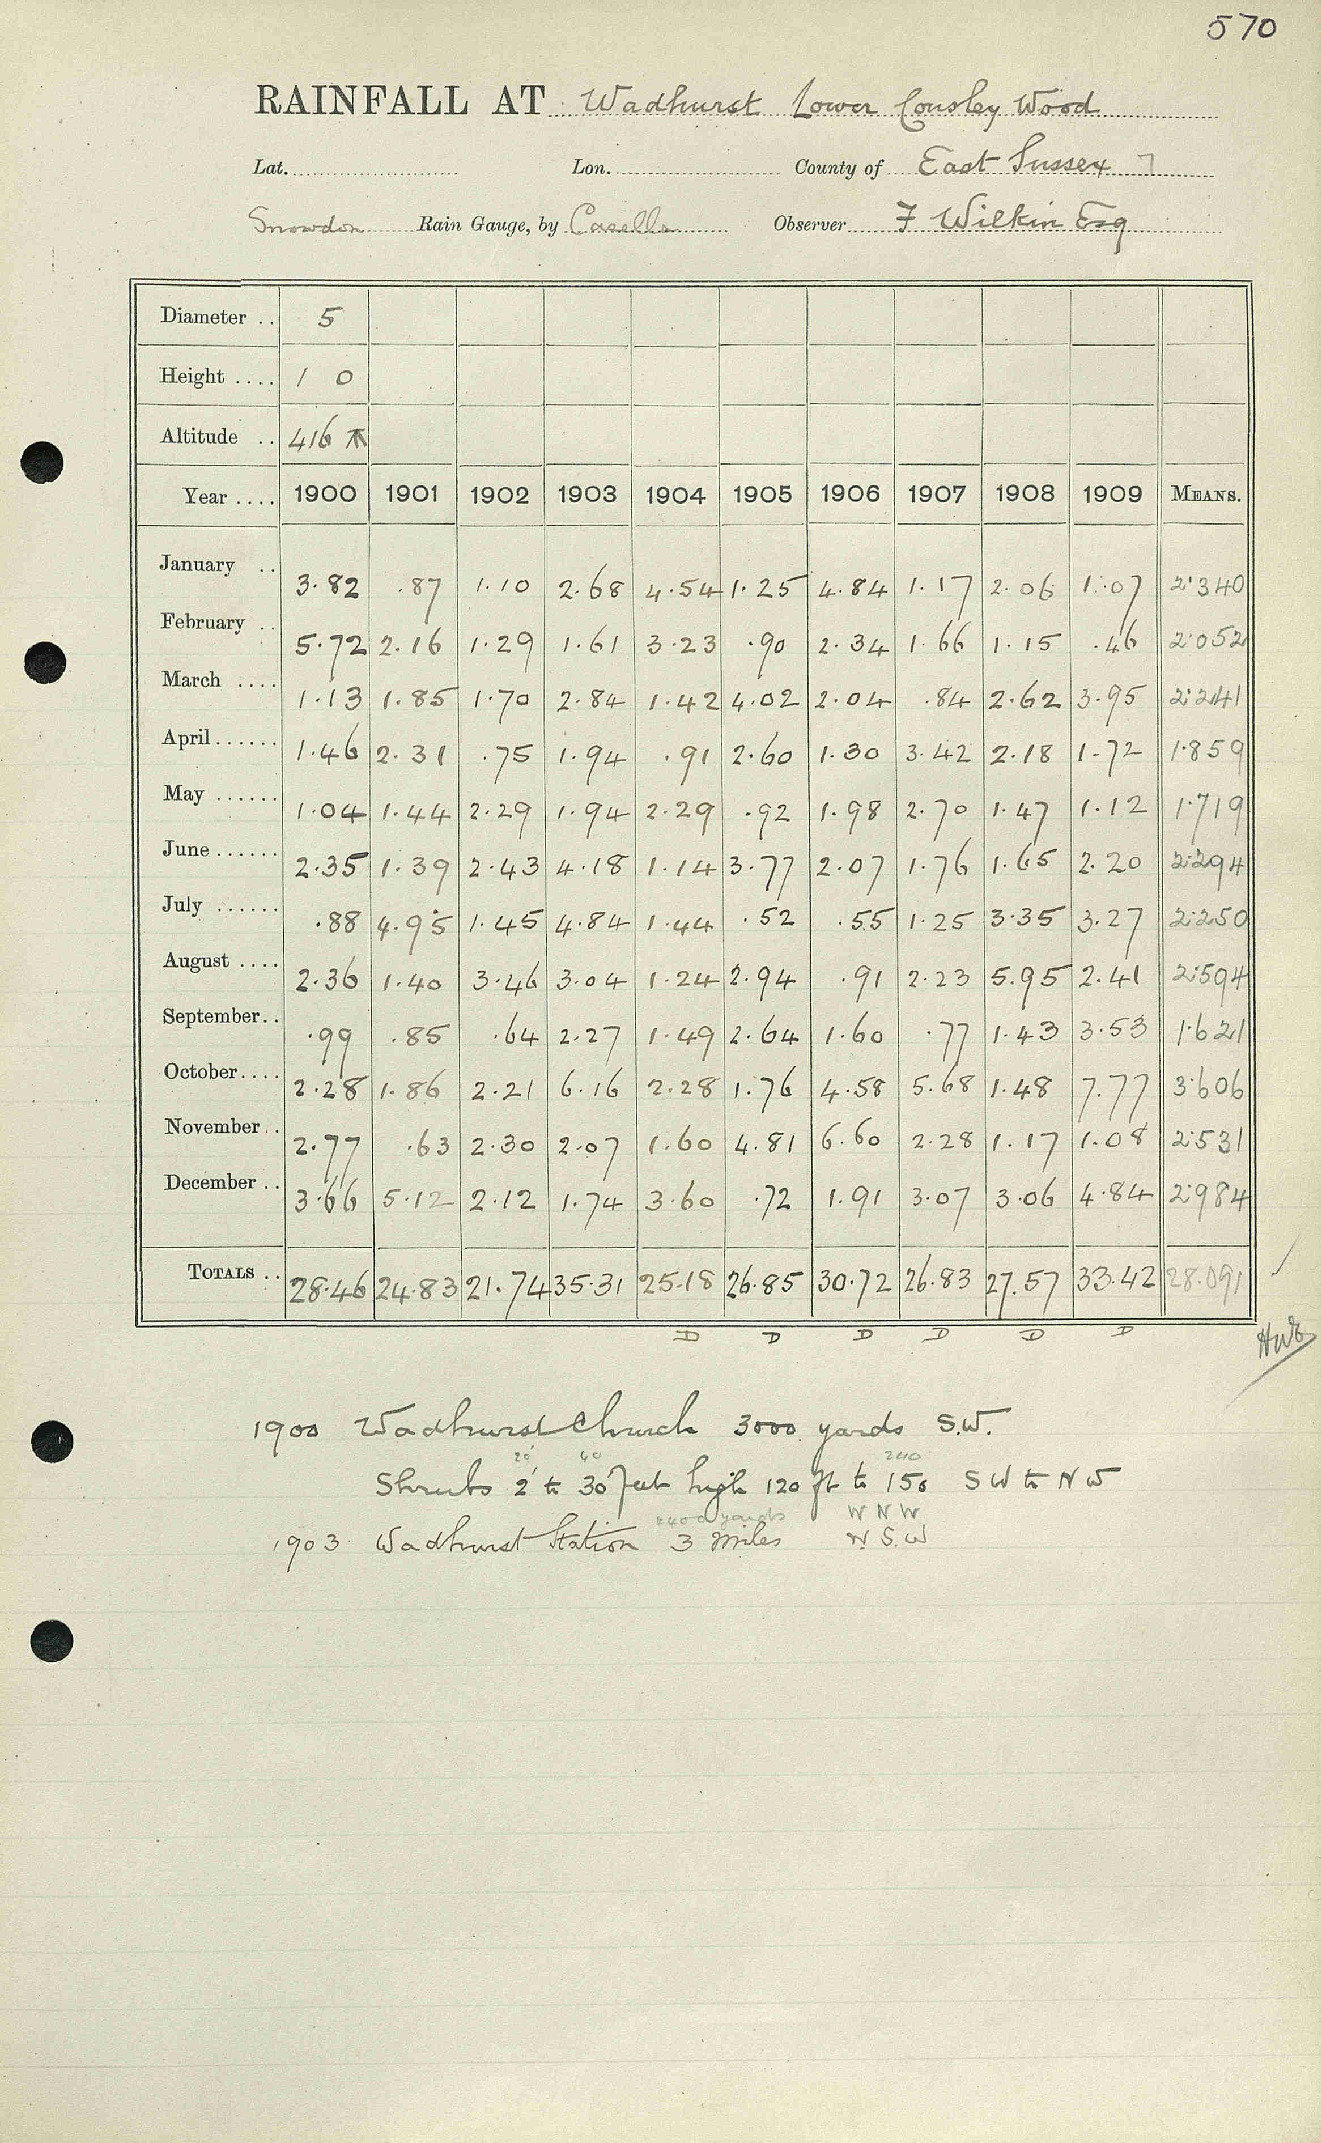 570
RAINFALL AT Wadhurst Lower Cousley Wood
Lat. Lon. County of East Sussex 7
Snowdon Rain Gauge, by Casella Observer F Wilkin Esq
Diameter .. 5
Height .... 1 0
Altitude .. 416
Year .... 1900 1901 1902 1903 1904 1905 1906 1907 1908 1909 MEANS.
January .. 3.82 .87 1.10 2.68 4.54 1.25 4.84 1.17 2.06 1.07 2.340
February .. 5.72 2.16 1.29 1.61 3.23 .90 2.34 1.66 1.15 .46 2.052
March .... 1.13 1.85 1.70 2.84 1.42 4.02 2.04 .84 2.62 3.95 2.241
April...... 1.46 2.31 .75 1.94 .91 2.60 1.30 3.42 2.18 1.72 1.859
May ...... 1.04 1.44 2.29 1.94 2.29 .92 1.98 2.70 1.47 1.12 1.719
June...... 2.35 1.39 2.43 4.18 1.14 3.77 2.07 1.76 1.65 2.20 2.294
July ...... .88 4.95 1.45 4.84 1.44 .52 .55 1.25 3.35 3.27 2.250
August .... 2.36 1.40 3.46 3.04 1.24 2.94 .91 2.23 5.95 2.41 2.594
September.. .99 .85 .64 2.27 1.49 2.64 1.60 .77 1.43 3.53 1.621
October.... 2.28 1.86 2.21 6.16 2.28 1.76 4.58 5.68 1.48 7.77 3.606
November.. 2.77 .63 2.30 2.07 1.60 4.81 6.60 2.28 1.17 1.08 2.531
December .. 3.66 5.12 2.12 1.74 3.60 .72 1.91 3.07 3.06 4.84 2.984
TOTALS .. 28.46 24.83 21.74 35.31 25.18 26.85 30.72 26.83 27.57 33.42 28.091
D D D D D D
1900 Wadhurst Church 3000 yards S.W.
20' 40 240
Shrubs 2' to 30 feet high 120 ft to 150 SW to NW
yards WNW
1903 Wadhurst Station 3 miles N S.W